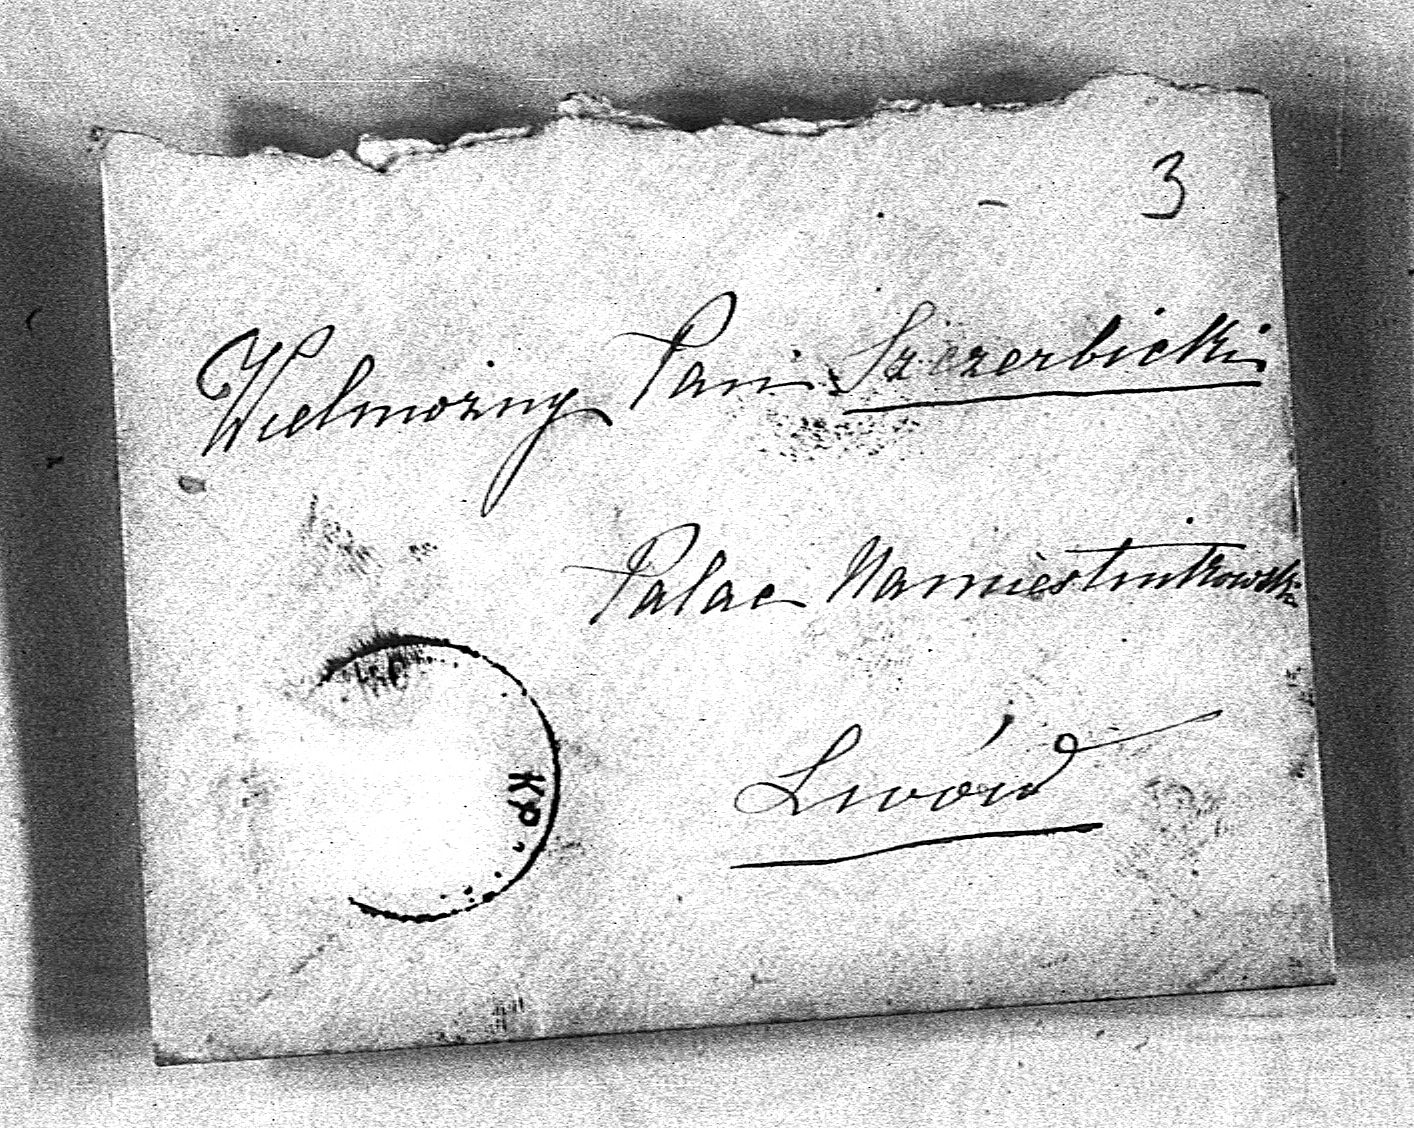 3
Wielmożny Pan Szczerbicki
Palac Namiestnikowski
Lwów
Kp.